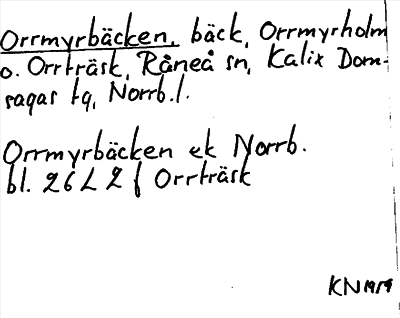 Orrmyrbäcken, bäck, Orrmyrholm
o. Orrträsk, Råneå sn, Kalix Dom-
sagas tg, Norrb.l.
Orrmyrbäcken ek Norrb.
bl. 26 L 2 f Orrträsk
KN 1959